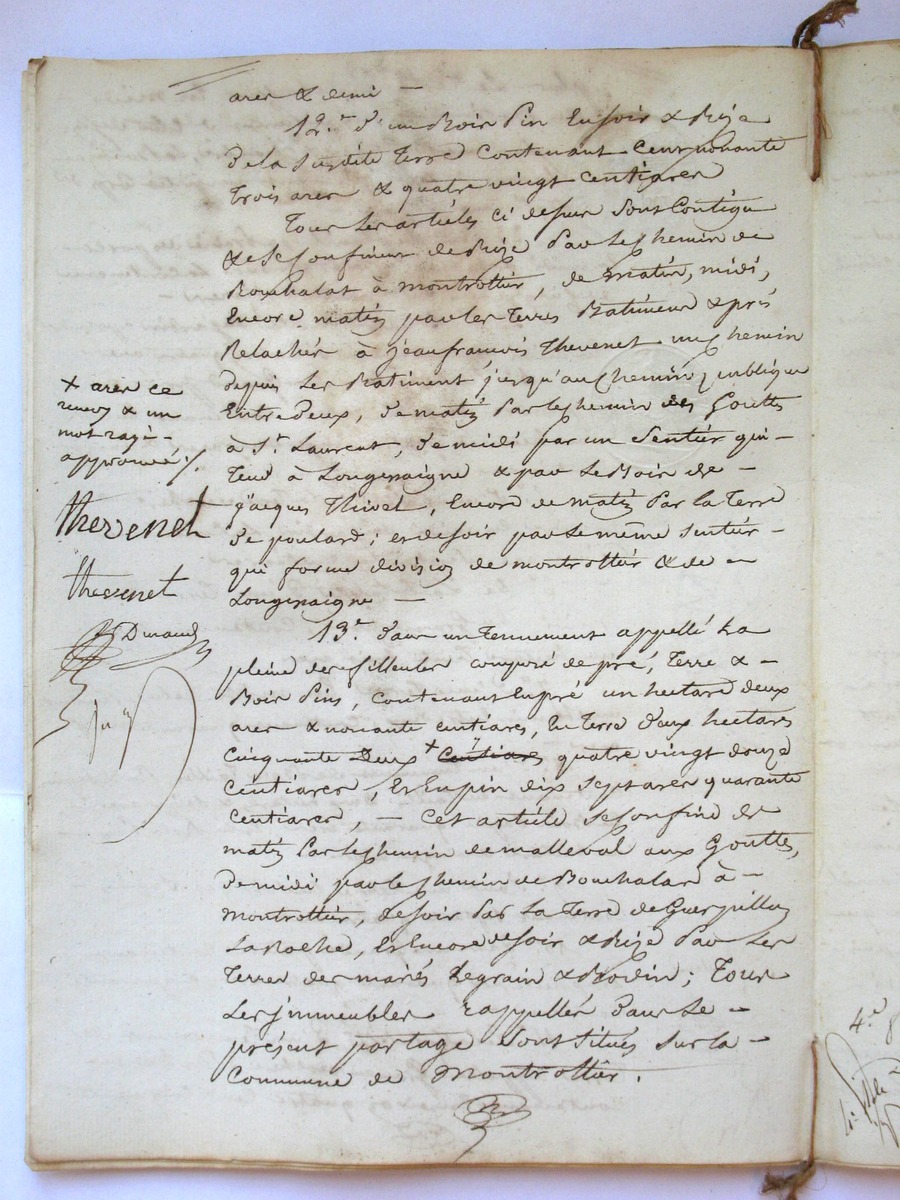 ares & demi —
12.e d'un Bois Pin En soir & Bize
de la susdite terre contenant Cent nonante
trois ares & quatre vingt centiares
Tous les articles ci dessus sont Contigus
& se Confinent de Bize Par le Chemin de
Bouchalas à montrottier, de matin, midi,
Encore matin par les terres Batiment & prés
Relachés à jean françois Thevenet un Chemin
depuis les Batiment jusqu'au Chemin publique
Entre deux, de matin Par le chemin des Gouttes
à St. Laurent, de midi par un Sentier qui —
Tend à Longessaigne & par le Bois de —
jacques Thivet, Encore de matin Par la terre
de poulard; et de soir par le même sentier —
qui forme division de montrottier & de —
Longessaigne —
13.e dans un Tennement appellé La
pleine des filleules composé de pré, Terre & —
Bois Pins, contenant En pré un hectare deux
ares & nonante centiares, En Terre deux hectares
Cinquante Deux + centiares quatre vingt douze
Centiares, Et En pin dix sept ares quarante
centiares, — Cet article se Confine de
matin Par le Chemin de malleval aux Gouttes,
de midi par le Chemin de Bouchalas à —
montrottier, de soir Par la Terre de
La Roche, Et Encore de soir & Bize Par les
Terres des mariés Legrain & Bodin; Tous
Les jmmeubles rappellés dans le —
présent partage sont situés sur la —
Commune de Montrottier.
+ ares ce
renvoy & un
mot rayé —
approuvé ./.
thevenet
thevenet
Durand
4.e